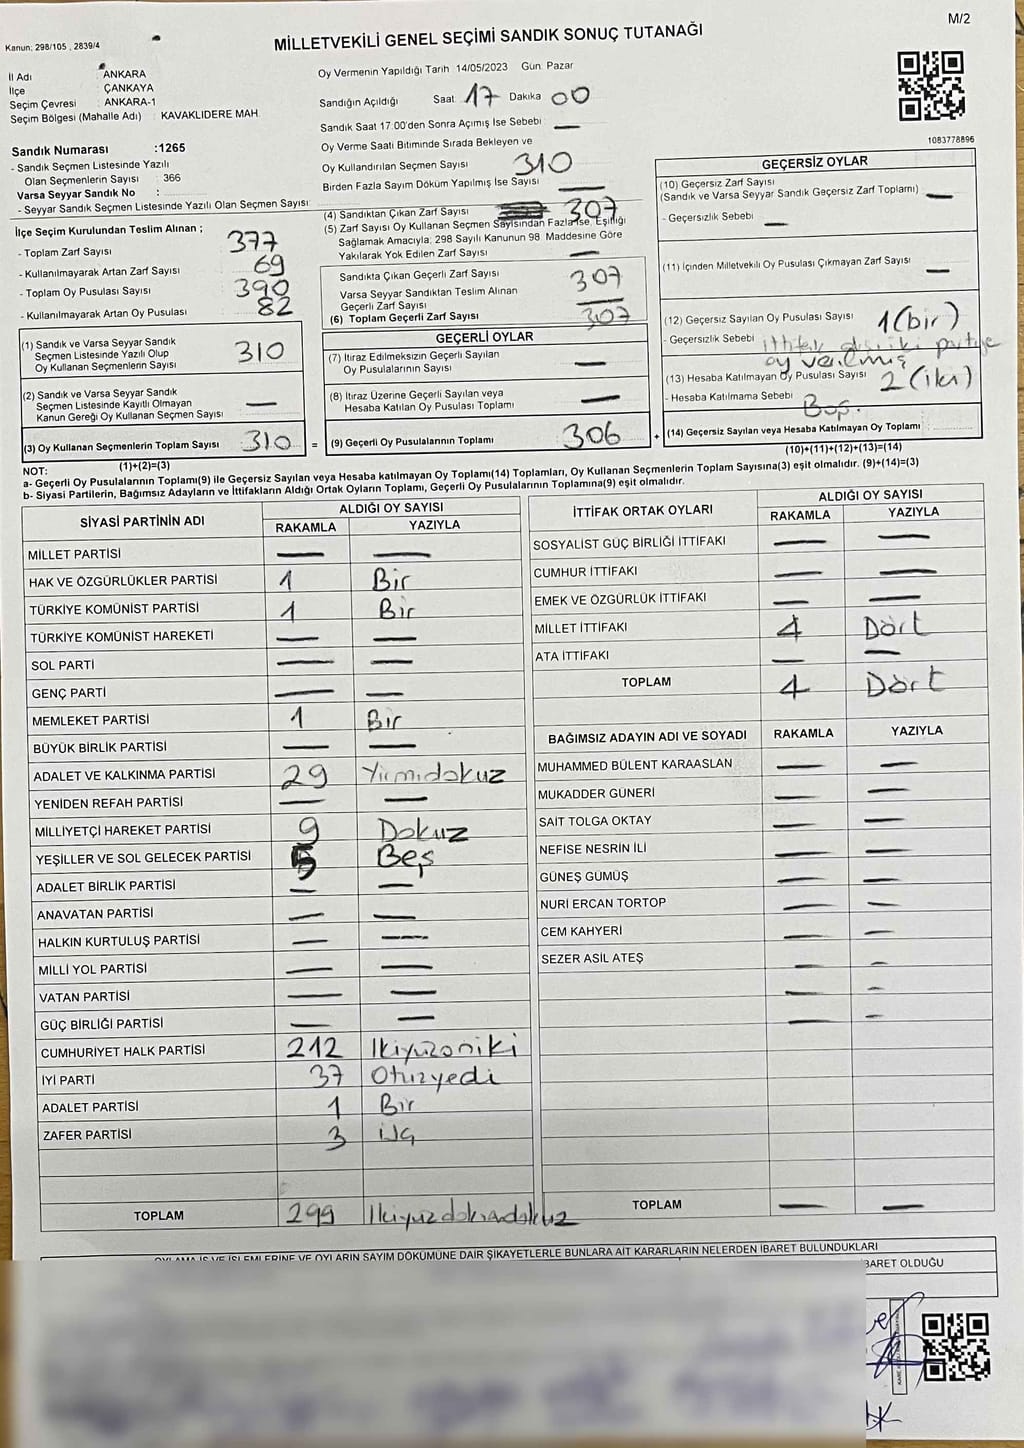 M/2
Kanun; 298/105 , 2839/4
MİLLETVEKİLİ GENEL SEÇİMİ SANDIK SONUÇ TUTANAĞI
İl Adı : ANKARA
İlçe : ÇANKAYA
Seçim Çevresi : ANKARA-1
Seçim Bölgesi (Mahalle Adı) : KAVAKLIDERE MAH
Sandık Numarası :1265
- Sandık Seçmen Listesinde Yazılı
Olan Seçmenlerin Sayısı : 366
Varsa Seyyar Sandık No :
- Seyyar Sandık Seçmen Listesinde Yazılı Olan Seçmen Sayısı:
İlçe Seçim Kurulundan Teslim Alınan ;
- Toplam Zarf Sayısı 377
- Kullanılmayarak Artan Zarf Sayısı 69
- Toplam Oy Pusulası Sayısı 390
- Kullanılmayarak Artan Oy Pusulası 82
(1) Sandık ve Varsa Seyyar Sandık
Seçmen Listesinde Yazılı Olup
Oy Kullanan Seçmenlerin Sayısı 310
(2) Sandık ve Varsa Seyyar Sandık
Seçmen Listesinde Kayıtlı Olmayan
Kanun Gereği Oy Kullanan Seçmen Sayısı —
(3) Oy Kullanan Seçmenlerin Toplam Sayısı 310 =
(1)+(2)=(3)
Oy Vermenin Yapıldığı Tarih 14/05/2023 Gün: Pazar
Sandığın Açıldığı Saat 17 Dakika 00
Sandık Saat 17:00'den Sonra Açımış İse Sebebi —
Oy Verme Saati Bitiminde Sırada Bekleyen ve
Oy Kullandırılan Seçmen Sayısı 310
Birden Fazla Sayım Döküm Yapılmış İse Sayısı —
(4) Sandıktan Çıkan Zarf Sayısı 307
(5) Zarf Sayısı Oy Kullanan Seçmen Sayısından Fazla İse, Eşitliği
Sağlamak Amacıyla; 298 Sayılı Kanunun 98. Maddesine Göre
Yakılarak Yok Edilen Zarf Sayısı —
Sandıkta Çıkan Geçerli Zarf Sayısı 307
Varsa Seyyar Sandıktan Teslim Alınan
Geçerli Zarf Sayısı —
(6) Toplam Geçerli Zarf Sayısı 307
GEÇERLİ OYLAR
(7) İtiraz Edilmeksizin Geçerli Sayılan
Oy Pusulalarının Sayısı —
(8) İtiraz Üzerine Geçerli Sayılan veya
Hesaba Katılan Oy Pusulası Toplamı —
(9) Geçerli Oy Pusulalarının Toplamı 306 +
1083778896
GEÇERSİZ OYLAR
(10) Geçersiz Zarf Sayısı
(Sandık ve Varsa Seyyar Sandık Geçersiz Zarf Toplamı) —
- Geçersizlik Sebebi —
(11) İçinden Milletvekili Oy Pusulası Çıkmayan Zarf Sayısı —
(12) Geçersiz Sayılan Oy Pusulası Sayısı 1(bir)
- Geçersizlik Sebebi ittifak dışı iki partiye
oy verilmiş
(13) Hesaba Katılmayan Oy Pusulası Sayısı 2(iki)
- Hesaba Katılmama Sebebi Boş.
(14) Geçersiz Sayılan veya Hesaba Katılmayan Oy Toplamı
(10)+(11)+(12)+(13)=(14)
NOT:
a- Geçerli Oy Pusulalarının Toplamı(9) ile Geçersiz Sayılan veya Hesaba katılmayan Oy Toplamı(14) Toplamları, Oy Kullanan Seçmenlerin Toplam Sayısına(3) eşit olmalıdır. (9)+(14)=(3)
b- Siyasi Partilerin, Bağımsız Adayların ve İttifakların Aldığı Ortak Oyların Toplamı, Geçerli Oy Pusulalarının Toplamına(9) eşit olmalıdır.
SİYASİ PARTİNİN ADI ALDIĞI OY SAYISI
RAKAMLA YAZIYLA
MİLLET PARTİSİ — —
HAK VE ÖZGÜRLÜKLER PARTİSİ 1 Bir
TÜRKİYE KOMÜNİST PARTİSİ 1 Bir
TÜRKİYE KOMÜNİST HAREKETİ — —
SOL PARTİ — —
GENÇ PARTİ — —
MEMLEKET PARTİSİ 1 Bir
BÜYÜK BİRLİK PARTİSİ — —
ADALET VE KALKINMA PARTİSİ 29 Yirmidokuz
YENİDEN REFAH PARTİSİ — —
MİLLİYETÇİ HAREKET PARTİSİ 9 Dokuz
YEŞİLLER VE SOL GELECEK PARTİSİ 5 Beş
ADALET BİRLİK PARTİSİ — —
ANAVATAN PARTİSİ — —
HALKIN KURTULUŞ PARTİSİ — —
MİLLİ YOL PARTİSİ — —
VATAN PARTİSİ — —
GÜÇ BİRLİĞİ PARTİSİ — —
CUMHURİYET HALK PARTİSİ 212 İkiyüzoniki
İYİ PARTİ 37 Otuzyedi
ADALET PARTİSİ 1 Bir
ZAFER PARTİSİ 3 üç
TOPLAM 299 İkiyüzdoksandokuz
İTTİFAK ORTAK OYLARI ALDIĞI OY SAYISI
RAKAMLA YAZIYLA
SOSYALİST GÜÇ BİRLİĞİ İTTİFAKI — —
CUMHUR İTTİFAKI — —
EMEK VE ÖZGÜRLÜK İTTİFAKI — —
MİLLET İTTİFAKI 4 Dört
ATA İTTİFAKI — —
TOPLAM 4 Dört
BAĞIMSIZ ADAYIN ADI VE SOYADI RAKAMLA YAZIYLA
MUHAMMED BÜLENT KARAASLAN — —
MUKADDER GÜNERİ — —
SAİT TOLGA OKTAY — —
NEFİSE NESRİN İLİ — —
GÜNEŞ GÜMÜŞ — —
NURİ ERCAN TORTOP — —
CEM KAHYERİ — —
SEZER ASİL ATEŞ — —
— —
— —
TOPLAM — —
OYLAMA İŞ VE İŞLEMLERİNE VE OYLARIN SAYIM DÖKÜMÜNE DAİR ŞİKAYETLERLE BUNLARA AİT KARARLARIN NELERDEN İBARET BULUNDUKLARI
BARET OLDUĞU